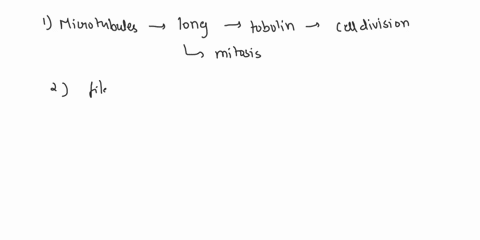 1) Microtubules → long → tobolin → cell division
↳ mitosis
2) file